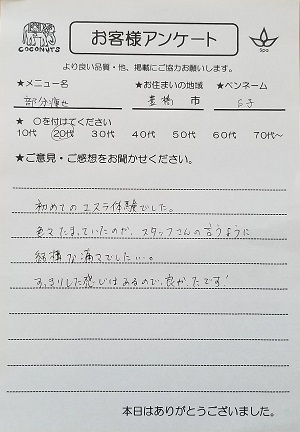 COCONUTS
お客様アンケート
Spa
より良い品質・他、掲載にご協力お願いします。
★メニュー名 ★お住まいの地域 ★ペンネーム
部分痩せ 豊橋 市 S子
★ ○を付けてください
10代 20代 30代 40代 50代 60代 70代～
★ご意見・ご感想をお聞かせください。
初めてのエステ体験でした。
たまっていたのか、スタッフさんの言うように
結構な痛さでした…。
すっきりした感じはあるので、良かったです!
本日はありがとうございました。